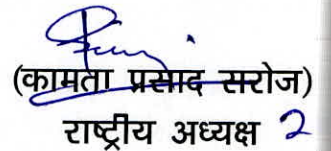 (कामता प्रसाद सरोज)
राष्ट्रीय अध्यक्ष 2